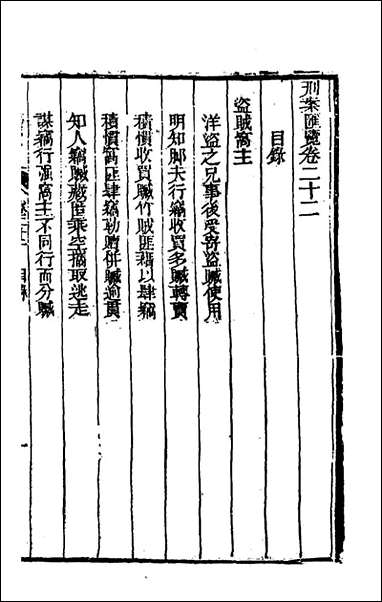 刑案匯覽卷二十二
目錄
盜賊窩主
洋盜之兄事後受寄盜贓使用
明知腳夫行竊收買多贓轉賣
積慣收買贓竹賊匪藉以肆竊
積慣窩匪肆竊勒贖併贓逾貫
知人竊贓藏匿乘空搬取逃走
謀竊行强窩主不同行而分贓
目錄